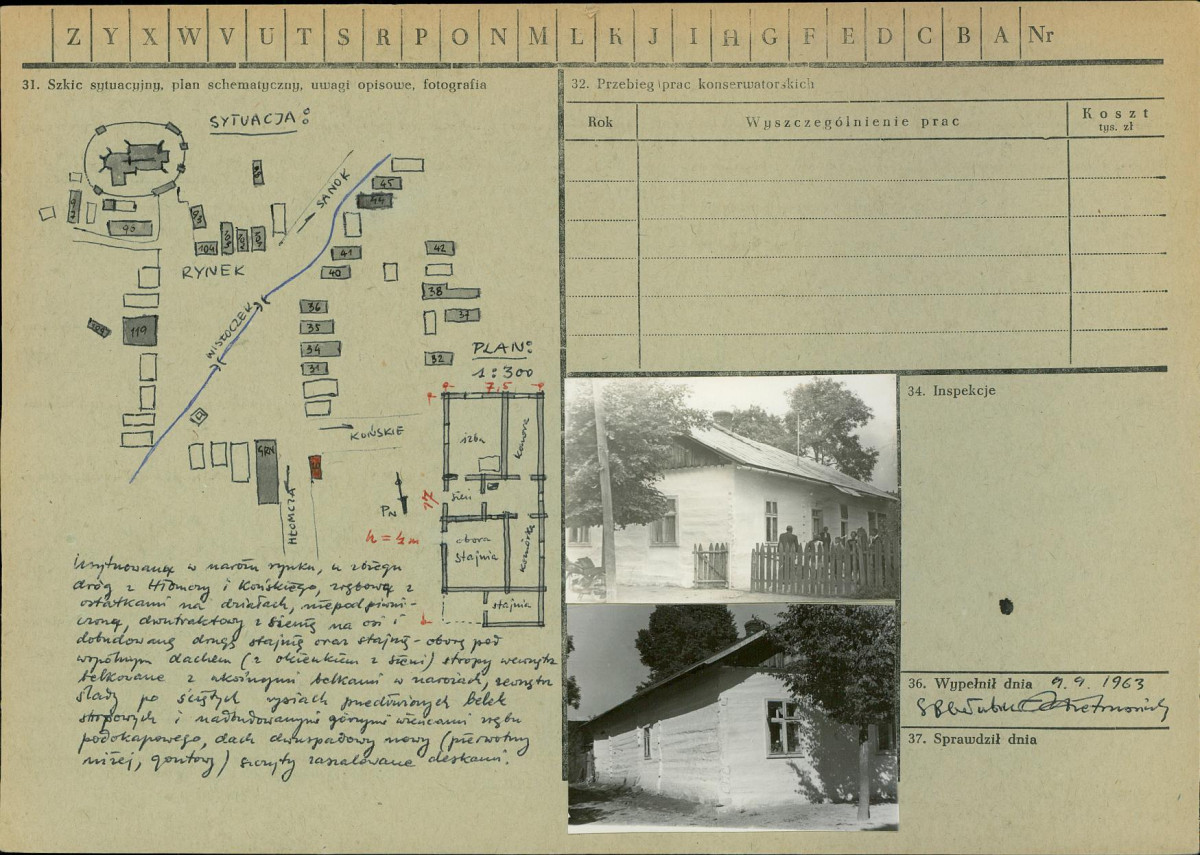 Z Y X W V U T S R P O N M L K J I H G F E D C B A Nr
31. Szkic sytuacyjny, plan schematyczny, uwagi opisowe, fotografia
SYTUACJA:
SANOK
45
44
90
104
RYNEK
41
40
42
38
37
32
36
35
34
31
119
WISŁOCZEK
KOŃSKIE
GRN
HŁOMCZA
PN
PLAN:
1:300
7,5
izba
komora
sień
17
obora
stajnia
komórka
stajnia
h = 1/2 m
Usytuowana w narożu rynku, u zbiegu
dróg z Hłomczy i Końskiego, zrębowa z
ostatkami na działach, niepodpiwni-
czona, dwutraktowa z sienią na osi i
dobudowaną drugą stajnią oraz stajnią-oborą pod
wspólnym dachem (z okienkiem z sieni) stropy wewnątrz
belkowane z ukośnymi belkami w narożach, zewnątrz
ślady po ściętych rysiach przedłużonych belek
stropowych i nadbudowanymi górnymi wieńcami zrębu
podokapowego, dach dwuspadowy nowy (pierwotny
niżej, gontowy) szczyty zaszalowane deskami.
32. Przebieg prac konserwatorskich
Rok
Wyszczególnienie prac
Koszt
tys. zł
34. Inspekcje
36. Wypełnił dnia 9.9.1963
37. Sprawdził dnia